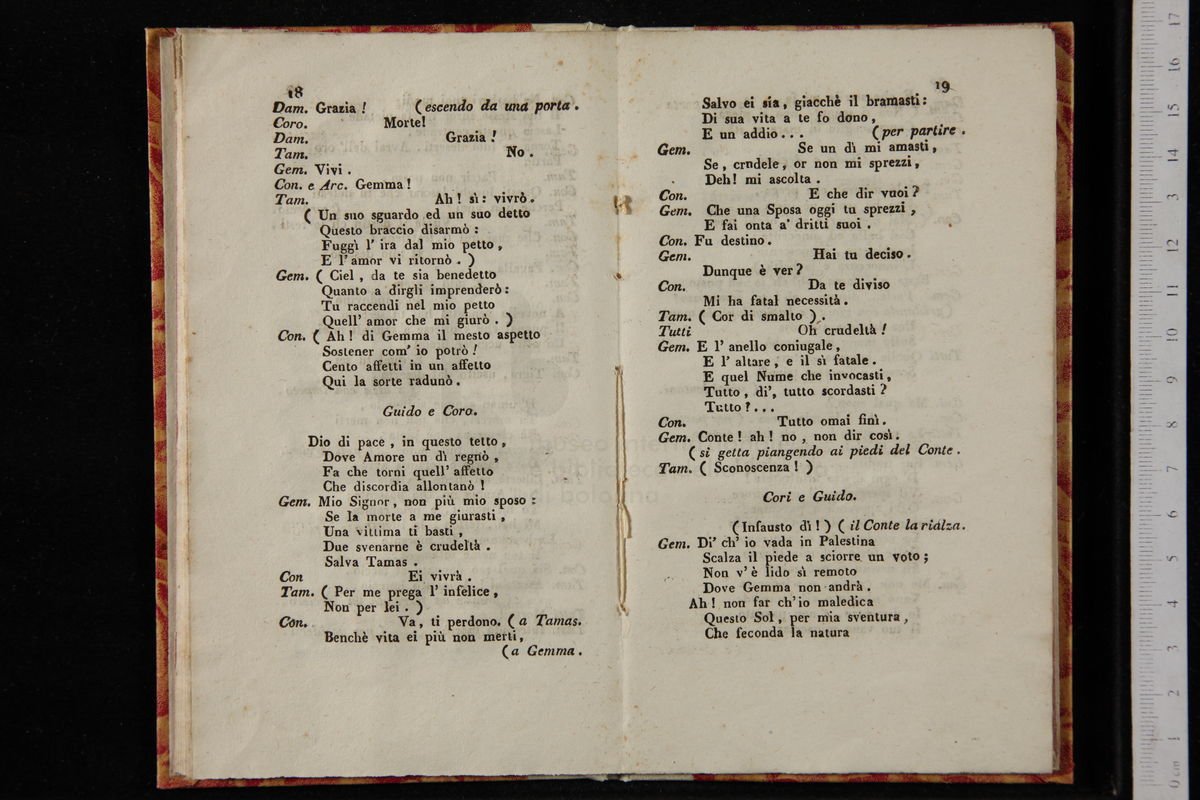 18
Dam. Grazia! (escendo da una porta.
Coro. Morte!
Dam. Grazia!
Tam. No.
Gem. Vivi.
Con. e Arc. Gemma!
Tam. Ah! sì: vivrò.
( Un suo sguardo ed un suo detto
Questo braccio disarmò:
Fuggì l' ira dal mio petto,
E l'amor vi ritornò. )
Gem. ( Ciel, da te sia benedetto
Quanto a dirgli imprenderò:
Tu raccendi nel mio petto
Quell' amor che mi giurò. )
Con. ( Ah! di Gemma il mesto aspetto
Sostener com' io potrò!
Cento affetti in un affetto
Qui la sorte radunò.
Guido e Coro.
Dio di pace, in questo tetto,
Dove Amore un dì regnò,
Fa che torni quell' affetto
Che discordia allontanò!
Gem. Mio Signor, non più mio sposo:
Se la morte a me giurasti,
Una vittima ti basti,
Due svenarne è crudeltà.
Salva Tamas.
Con Ei vivrà.
Tam. ( Per me prega l' infelice,
Non per lei. )
Con. Va, ti perdono. (a Tamas.
Benchè vita ei più non merti,
(a Gemma.
19
Salvo ei sia, giacchè il bramasti:
Di sua vita a te fo dono,
E un addio... (per partire.
Gem. Se un dì mi amasti,
Se, crndele, or non mi sprezzi,
Deh! mi ascolta.
Con. E che dir vuoi?
Gem. Che una Sposa oggi tu sprezzi,
E fai onta a' dritti suoi.
Con. Fu destino.
Gem. Hai tu deciso.
Dunque è ver?
Con. Da te diviso
Mi ha fatal necessità.
Tam. ( Cor di smalto ).
Tutti Oh crudeltà!
Gem. E l' anello coniugale,
E l' altare, e il sì fatale.
E quel Nume che invocasti,
Tutto, di', tutto scordasti?
Tutto?...
Con. Tutto omai finì.
Gem. Conte! ah! no, non dir così.
( si getta piangendo ai piedi del Conte.
Tam. ( Sconoscenza! )
Cori e Guido.
(Infausto dì!) ( il Conte la rialza.
Gem. Di' ch' io vada in Palestina
Scalza il piede a sciorre un voto;
Non v' è lido sì remoto
Dove Gemma non andrà.
Ah! non far ch'io maledica
Questo Sol, per mia sventura,
Che feconda la natura